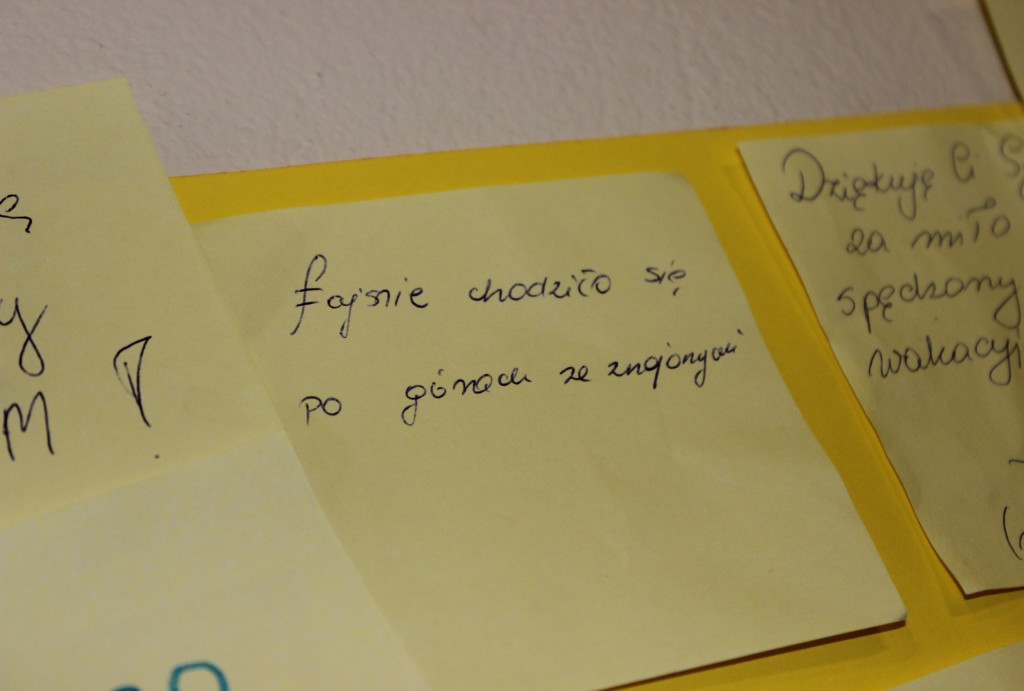 fajnie chodziło się
po górach ze znajomymi
Dziękuję Ci
za miło
spędzony
wakacyj